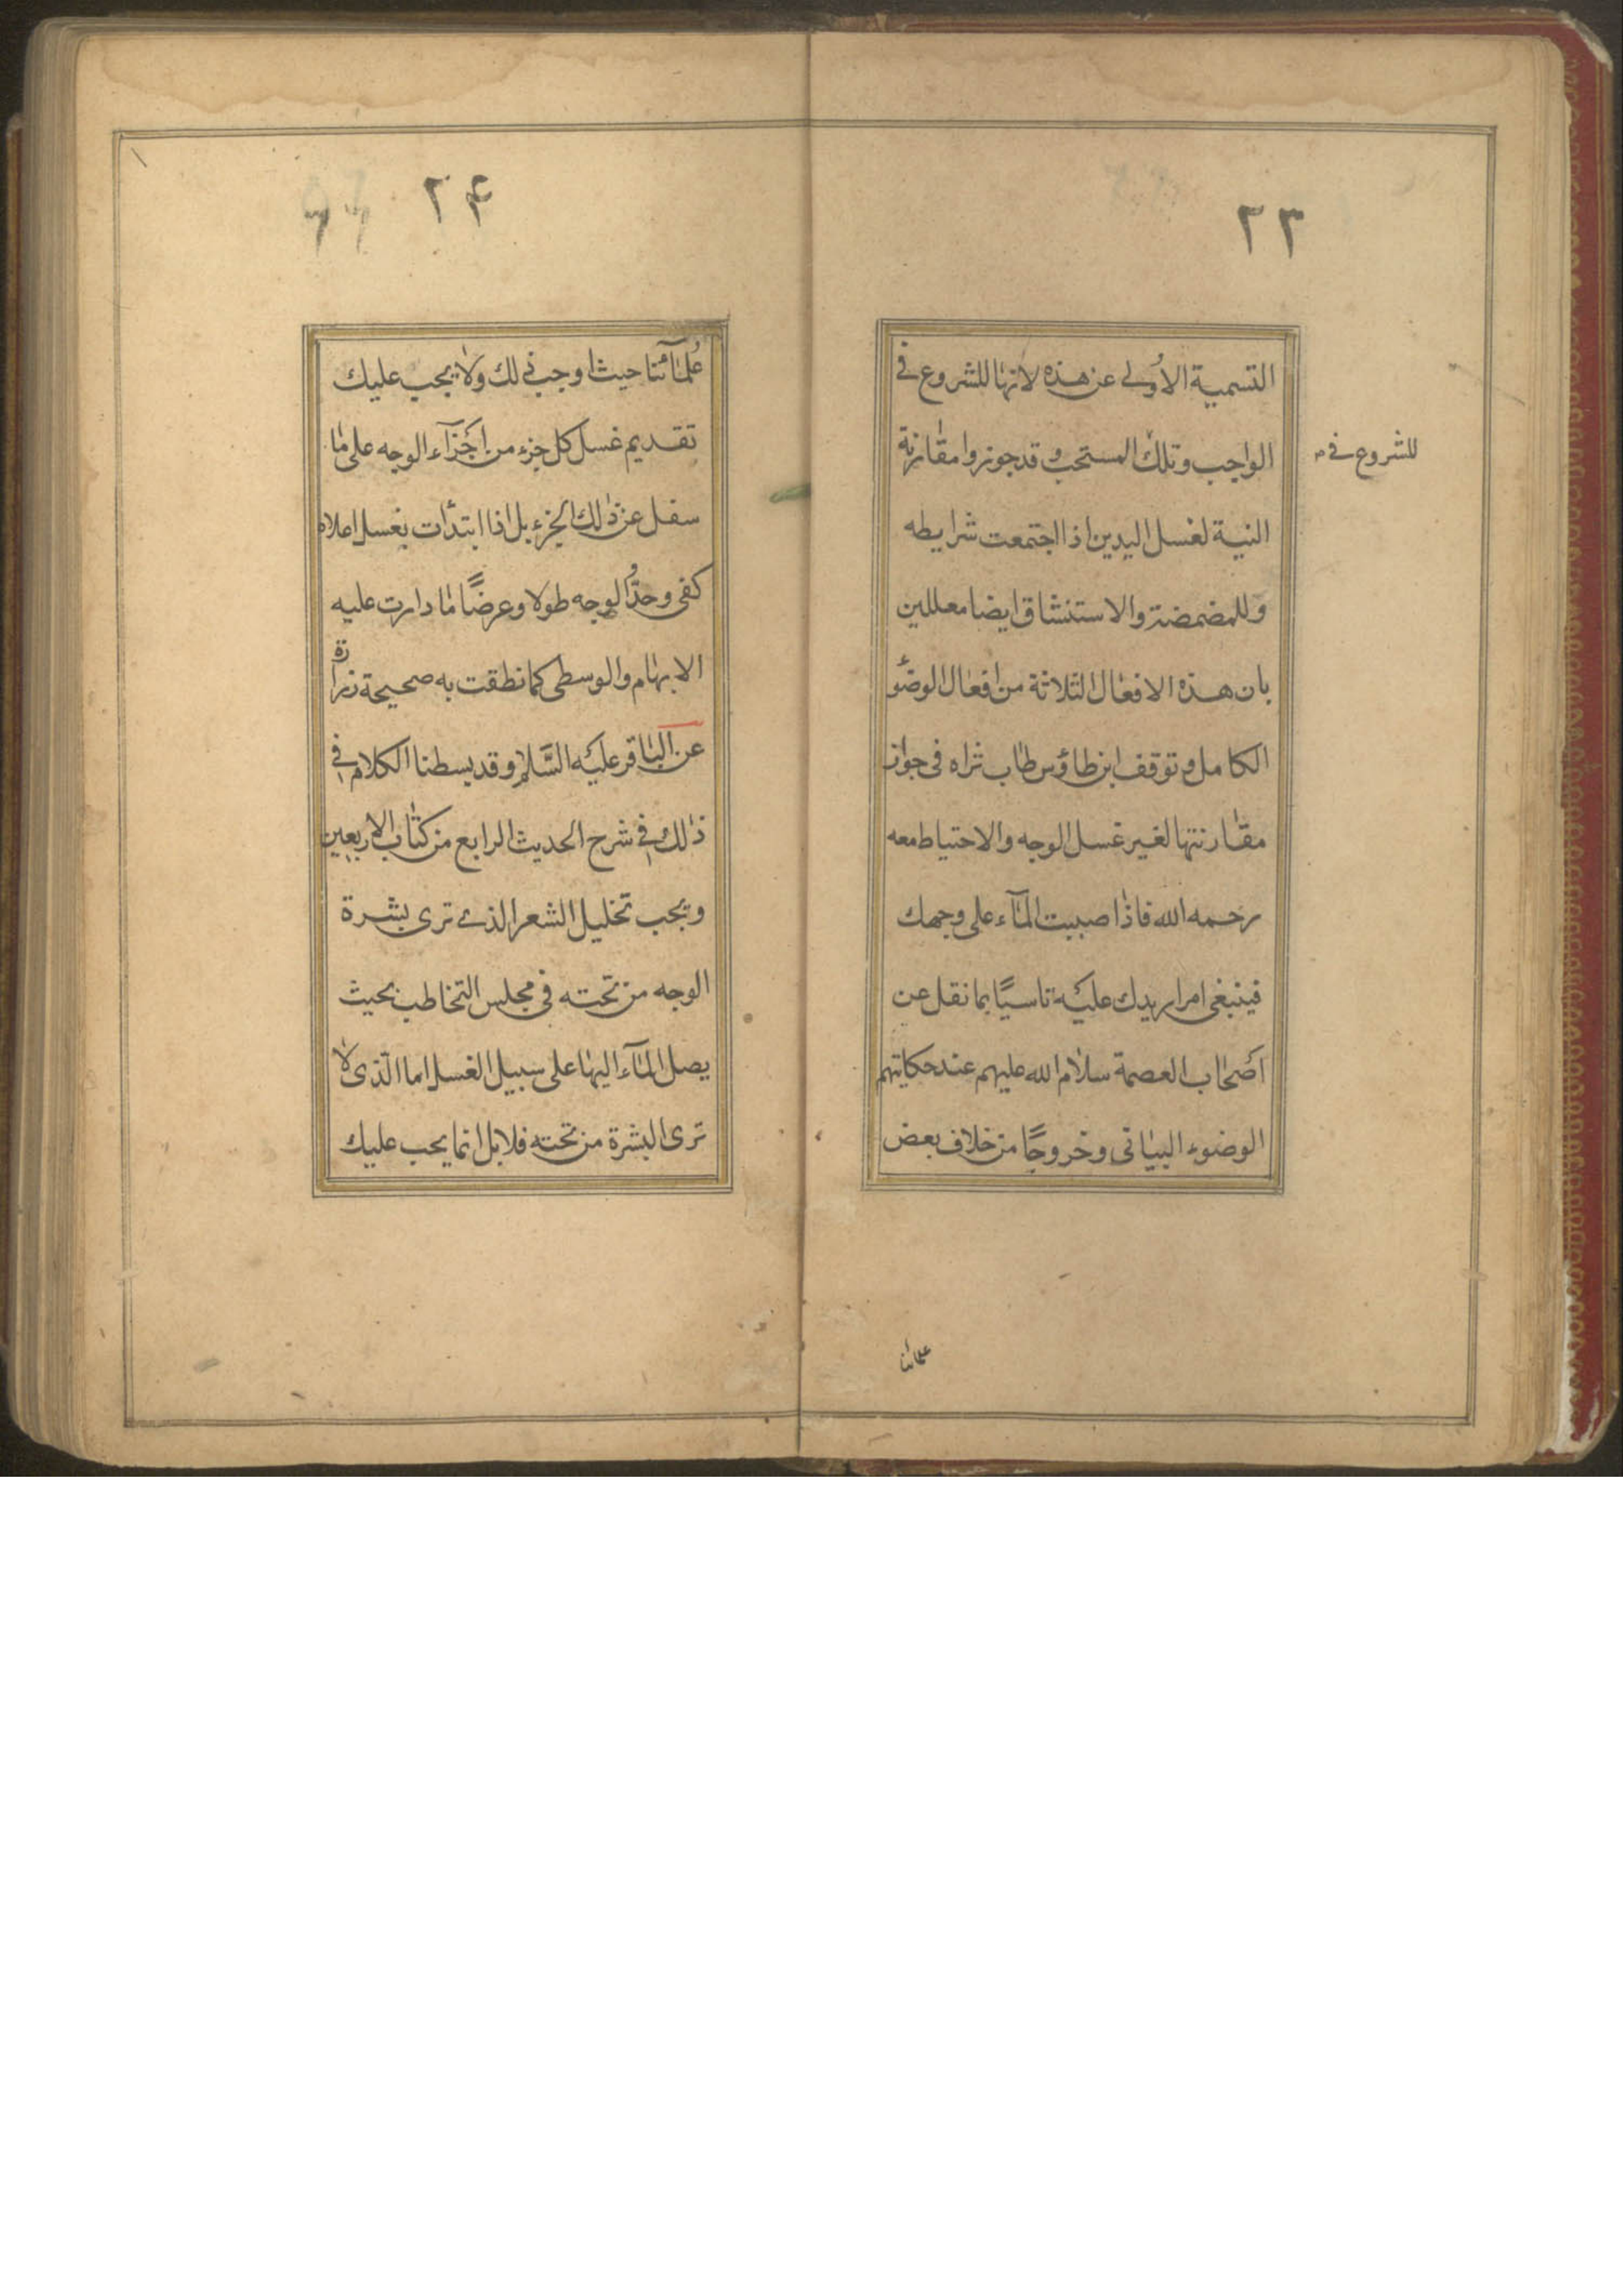 ٢٣
التسمية الاُولى عن هذه لانها للشروع فى
الواجب وتلك المستحب وقد جوزوا مقارنة
للشروع فى
النية لغسل اليدين اذا اجتمعت شرايطه
وللمضمضة والاستنشاق ايضا معللين
بان هذه الافعال الثلاثة من افعال الوضؤ
الكامل وتوقف ابن طاؤس طاب ثراه فى جواز
مقارنتها لغير غسل الوجه والاحتياط معه
رحمه الله فاذا صببت المآء على وجهك
فينبغى امرار يدك عليه تاسيًا بما نقل عن
اصحاب العصمة سلام الله عليهم عند حكايتهم
الوضوء البيانى وخروجًا من خلاف بعض
علمائنا
٢۴
عُلمآئنا حيث اوجب ذلك ولا يجب عليك
تقديم غسل كل جزء من اجزآء الوجه على ما
سفل عن ذلك الجزء بل اذا ابتدأت بغسل اعلاه
كفى وحدُّ الوجه طولا وعرضًا ما دارت عليه
الابهام والوسطى كما نطقت به صحيحة زرارة
عن الباقر عليه السَّلام وقد بسطنا الكلام فى
ذلك فى شرح الحديث الرابع من كتاب الاربعين
ويجب تخليل الشعر الذى ترى بشرة
الوجه من تحته فى مجلس التخاطب بحيث
يصل المآء اليها على سبيل الغسل اما الّذى لا
ترى البشرة من تحته فلا بل انما يجب عليك